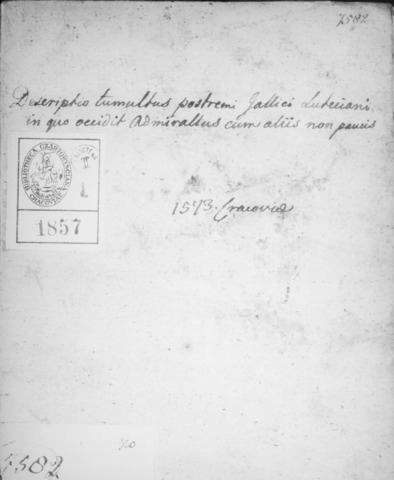 7582
Descriptio tumultus postremi Gallici Luteciani
in quo occidit Admirallus cum aliis non paucis
BIBLIOTHECA
CRACOVIAE
I
1
1857
1573. Cracoviæ
7582